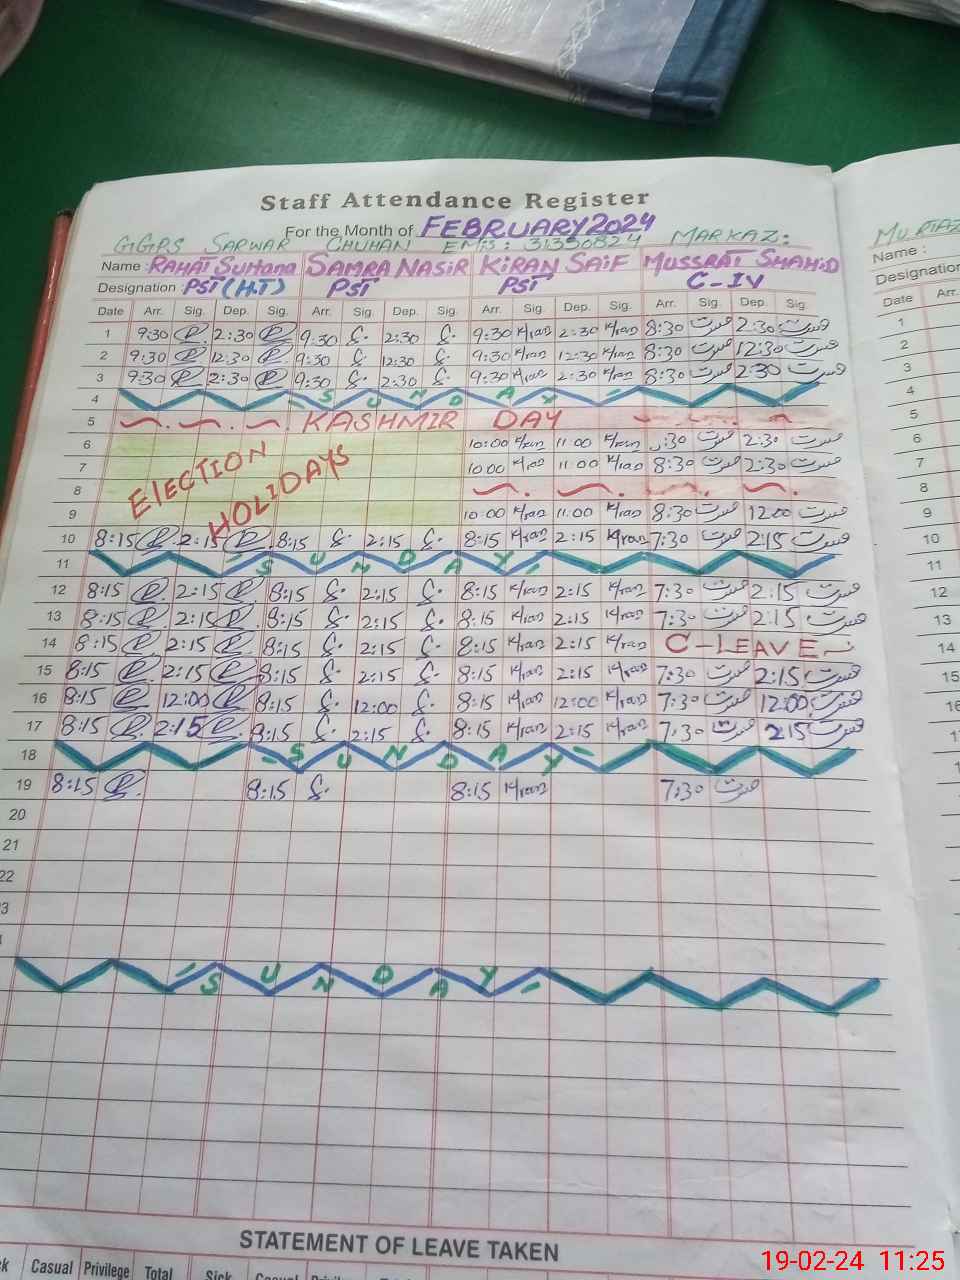 Staff Attendance Register
For the Month of FEBRUARY 2024
GGPS SARWAR CHUHAN EMIS: 31330824 MARKAZ:
Name: RAHAT Sultana SAMRA NASIR KIRAN SAIF MUSSRAT SHAHID
Designation PST (H.T) PST PST C-IV
Date Arr. Sig. Dep. Sig. Arr. Sig. Dep. Sig. Arr. Sig. Dep. Sig. Arr. Sig. Dep. Sig
1 9:30 2:30 9:30 2:30 9:30 Kiran 2:30 Kiran 8:30 مسرت 2:30 مسرت
2 9:30 12:30 9:30 12:30 9:30 Kiran 12:30 Kiran 8:30 مسرت 12:30 مسرت
3 9:30 2:30 9:30 2:30 9:30 Kiran 2:30 Kiran 8:30 مسرت 2:30 مسرت
4 - SUNDAY -
5 KASHMIR DAY
6 10:00 Kiran 11:00 Kiran :30 مسرت 2:30 مسرت
7 ELECTION HOLIDAYS 10:00 Kiran 11:00 Kiran 8:30 مسرت 2:30 مسرت
8
9 10:00 Kiran 11:00 Kiran 8:30 مسرت 12:00 مسرت
10 8:15 2:15 8:15 2:15 8:15 Kiran 2:15 Kiran 7:30 مسرت 2:15 مسرت
11 - SUNDAY -
12 8:15 2:15 8:15 2:15 8:15 Kiran 2:15 Kiran 7:30 مسرت 2:15 مسرت
13 8:15 2:15 8:15 2:15 8:15 Kiran 2:15 Kiran 7:30 مسرت 2:15 مسرت
14 8:15 2:15 8:15 2:15 8:15 Kiran 2:15 Kiran C-LEAVE
15 8:15 2:15 8:15 2:15 8:15 Kiran 2:15 Kiran 7:30 مسرت 2:15 مسرت
16 8:15 12:00 8:15 12:00 8:15 Kiran 12:00 Kiran 7:30 مسرت 12:00 مسرت
17 8:15 2:15 8:15 2:15 8:15 Kiran 2:15 Kiran 7:30 مسرت 2:15 مسرت
18 - SUNDAY -
19 8:15 8:15 8:15 Kiran 7:30 مسرت
20
21
22
3
- SUNDAY -
STATEMENT OF LEAVE TAKEN
Casual Privilege Total Sick
MURTAZ
Name:
Designation
Date Arr.
1
2
3
4
5
6
7
8
9
10
11
12
13
14
15
16
19-02-24 11:25